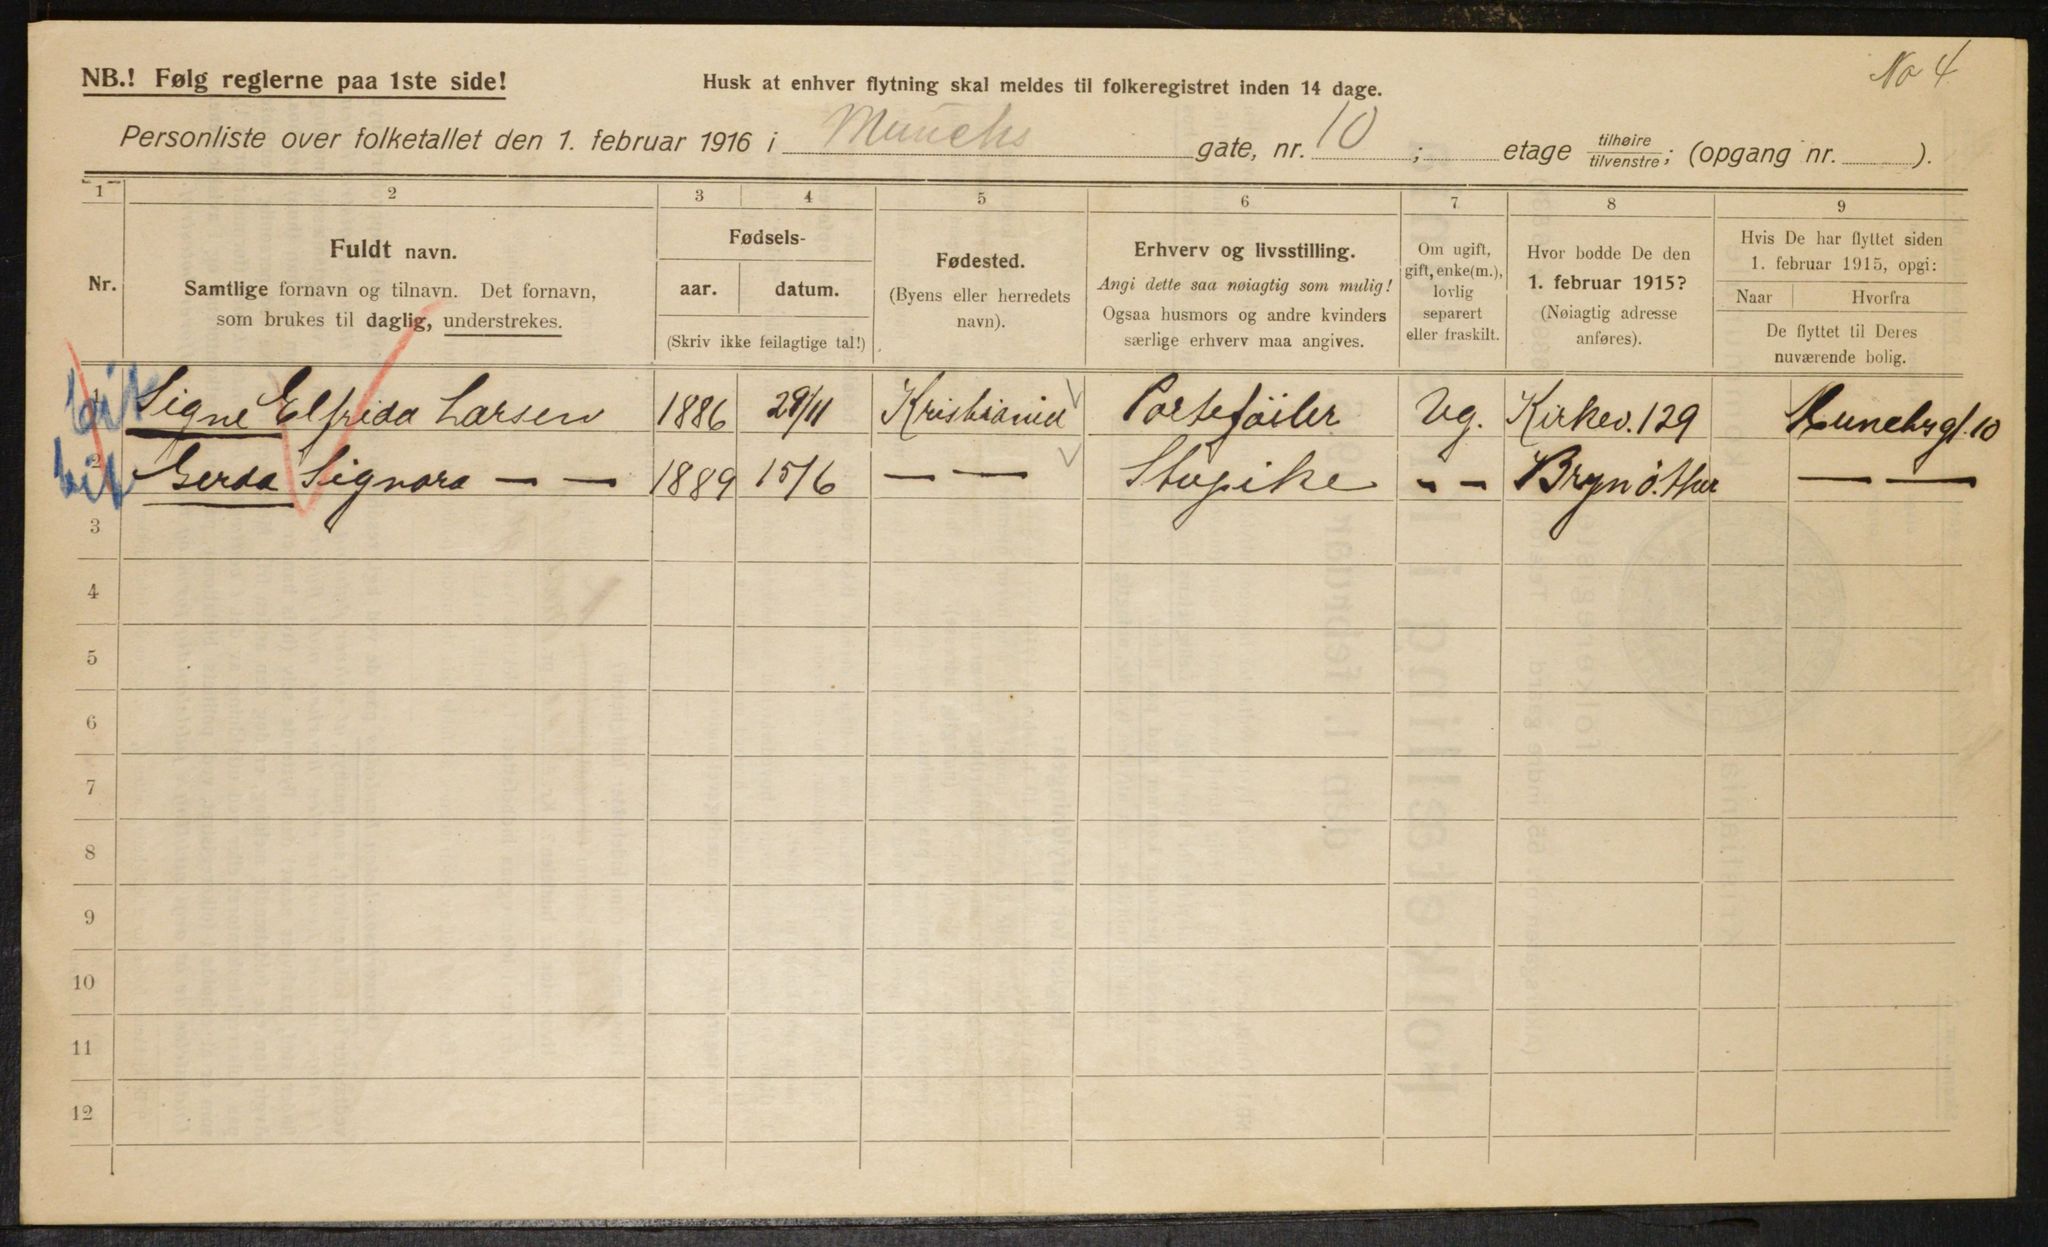 No 4
NB.! Følg reglerne paa 1ste side!
Husk at enhver flytning skal meldes til folkeregistret inden 14 dage.
Personliste over folketallet den 1. februar 1916 i Munchs gate, nr. 10 ; etage tilhøire/tilvenstre; (opgang nr. ).
1 2 3 4 5 6 7 8 9
Nr.
Fuldt navn.
Samtlige fornavn og tilnavn. Det fornavn,
som brukes til daglig, understrekes.
Fødsels-
aar. datum.
(Skriv ikke feilagtige tal!)
Fødested.
(Byens eller herredets
navn).
Erhverv og livsstilling.
Angi dette saa nøiagtig som mulig!
Ogsaa husmors og andre kvinders
særlige erhverv maa angives.
Om ugift,
gift, enke(m.),
lovlig
separert
eller fraskilt.
Hvor bodde De den
1. februar 1915?
(Nøiagtig adresse
anføres).
Hvis De har flyttet siden
1. februar 1915, opgi:
Naar Hvorfra
De flyttet til Deres
nuværende bolig.
1 Signe Elfrida Larsen 1886 29/11 Kristiania Portefôiler Ug. Kirkev. 129 10
2 Gerda Signora — — 1889 15/6 — — - - Bryn
3
4
5
6
7
8
9
10
11
12